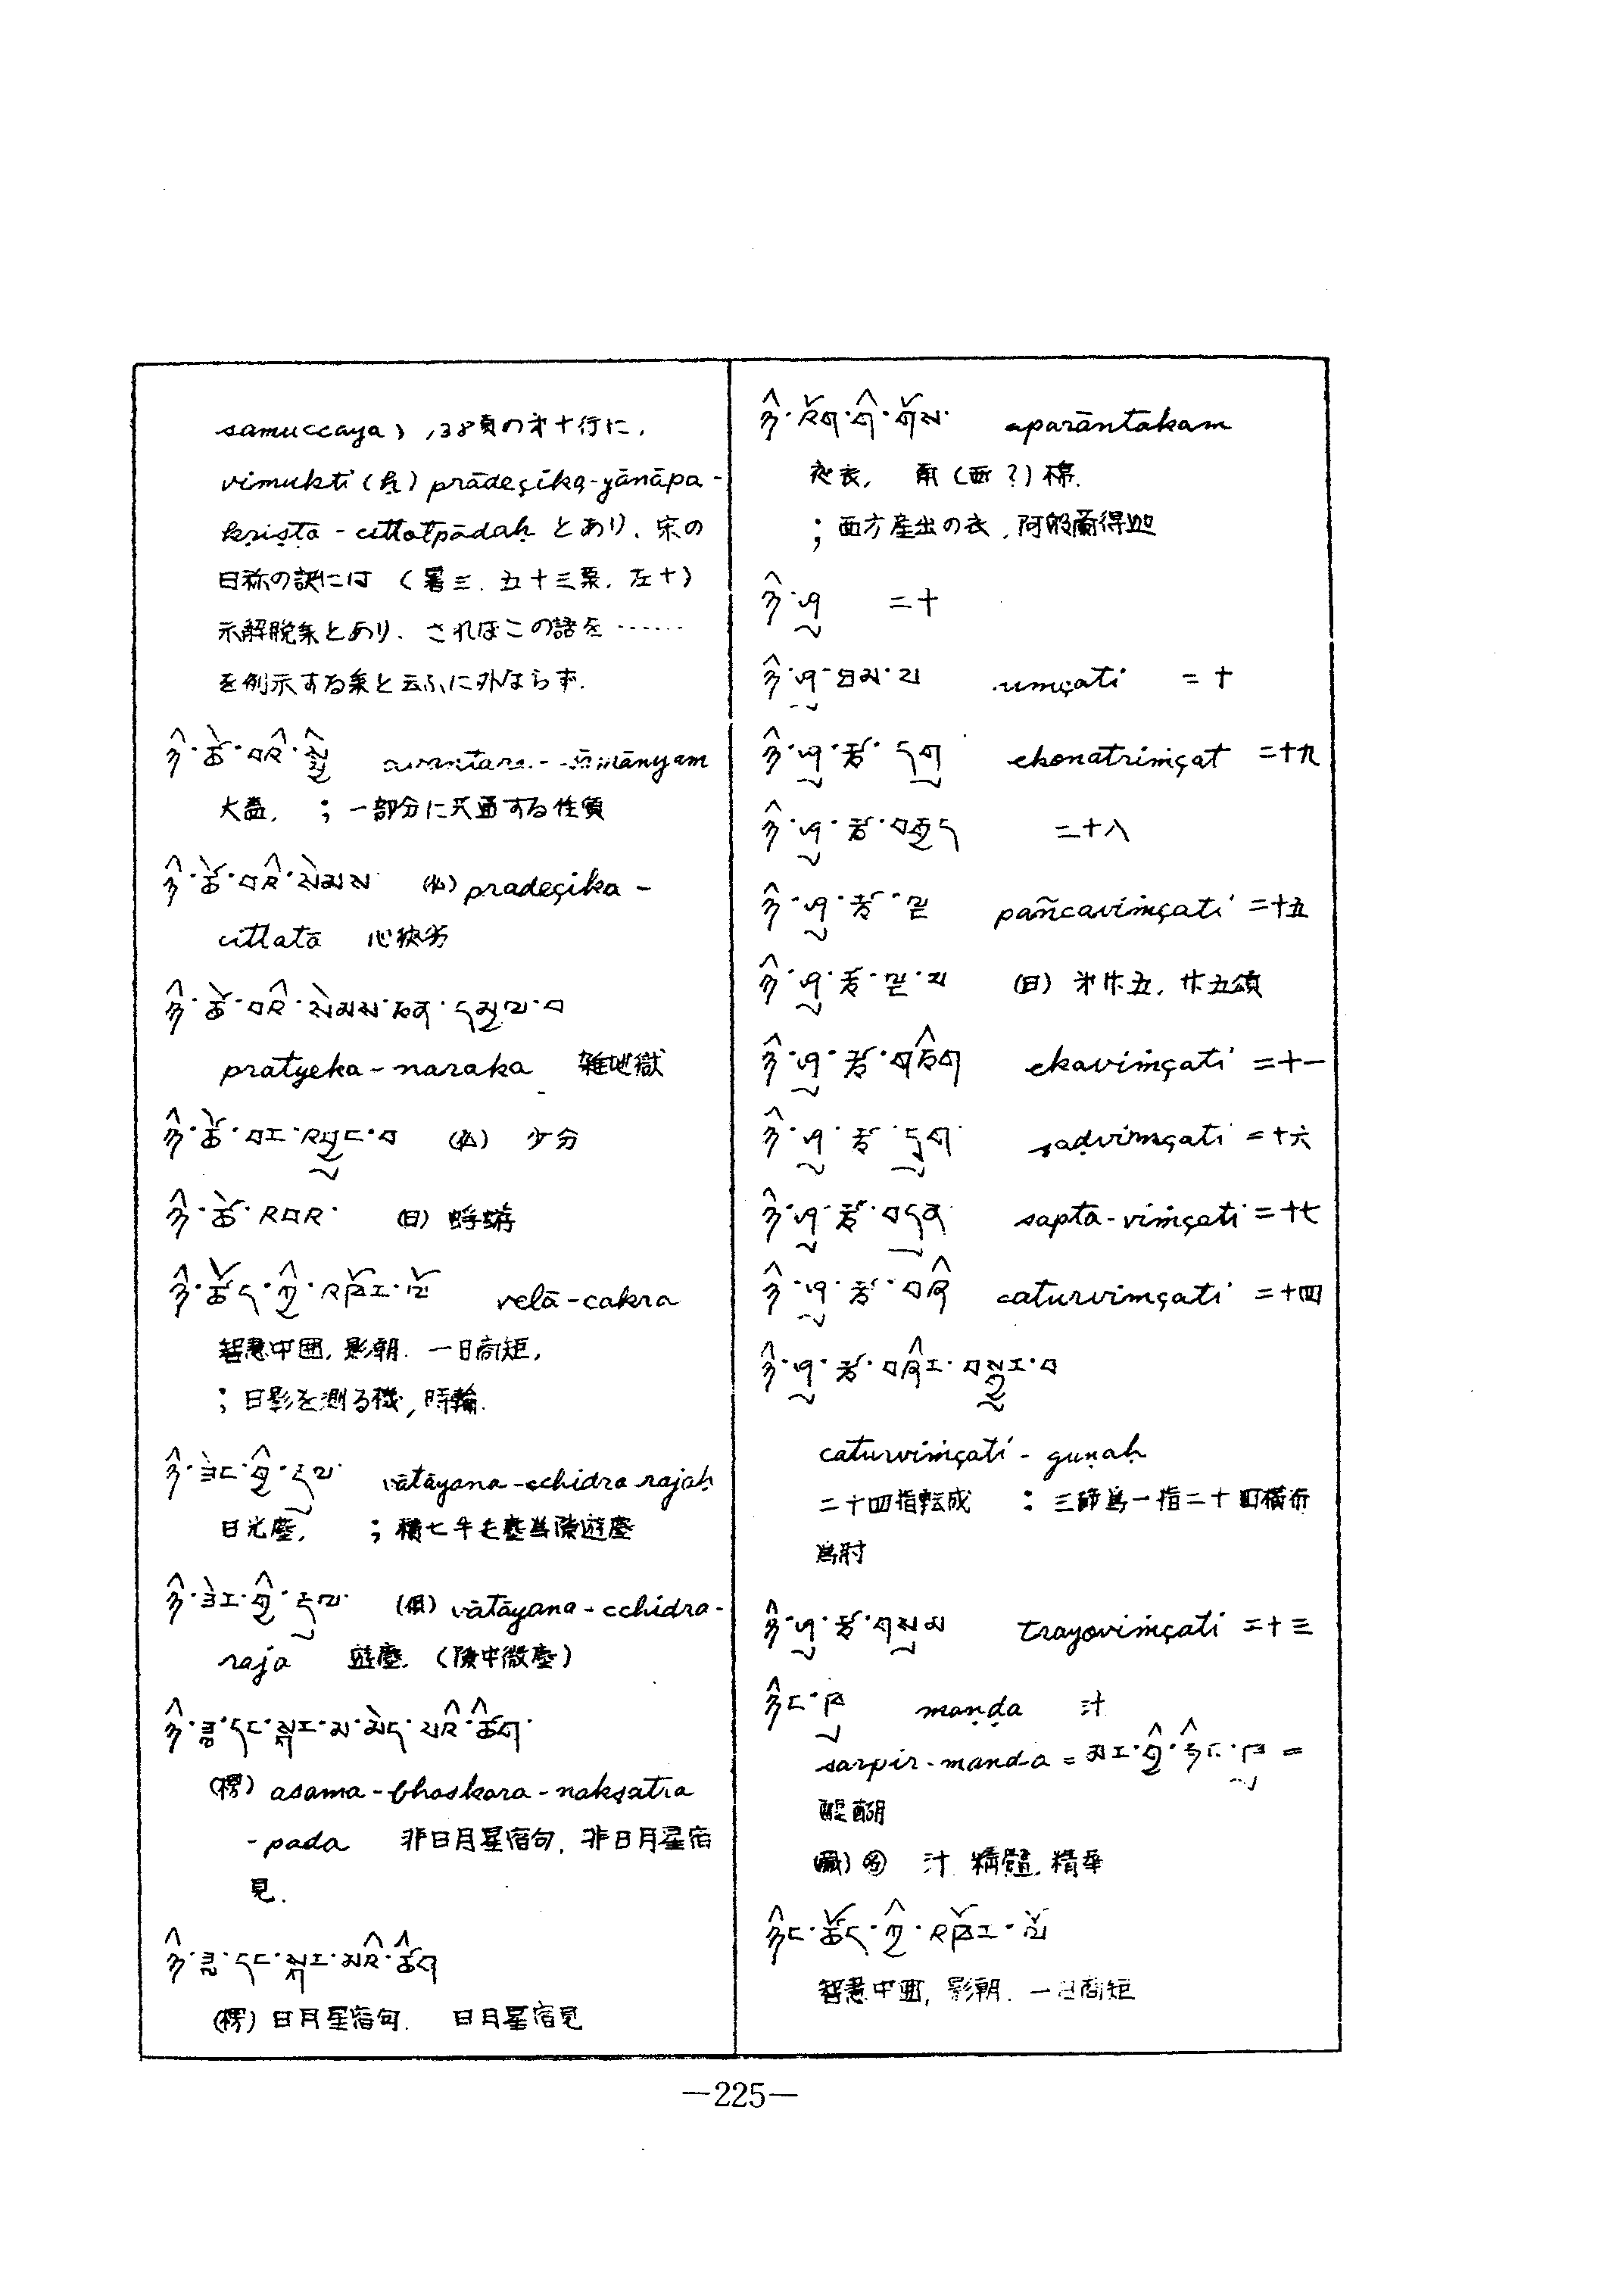 samuccaya) ,38頁の才十行に,
vimukti (ḥ) prādeçika-yānāpa-
kṛiṣṭā-cittotpādaḥ とあり、宋の
日称の訳には (暑三、五十三葉、左十)
示解脱条とあり、さればこの語を……
を例示する条と云ふに外ならず.
ཉི་ཚེ་བའི་སྤྱི avantara-sāmānyam
大益, ; 一部分に共通する性質
ཉི་ཚེ་བའི་སེམས pradeçika-
cittatā 心狭劣
ཉི་ཚེ་བའི་སེམས་ཅན་དམྱལ་བ
pratyeka-naraka 雑地獄
ཉི་ཚེ་བར་འབྱུང་བ 少分
ཉི་ཚེ་འབའ་ (日) 蜉蝣
ཉི་ཚོད་ཀྱི་འཁོར་ལོ velā-cakra
智慧中囲, 影朝. 一日商矩,
; 日影を測る機, 時輪.
ཉི་ཟེར་གྱི་རྡུལ vātāyana-cchidra rajaḥ
日光塵, ; 積七牛毛塵為隙遊塵
ཉི་ཟེར་གྱི་རྡུལ vātāyana-cchidra-
raja 遊塵, (隙中微塵)
ཉི་ཟླ་དང་སྐར་མ་མེད་པའི་ཚིག
(楞) asama-bhaskara-nakṣatra
-pada 非日月星宿句, 非日月星宿
見.
ཉི་ཟླ་དང་སྐར་མའི་ཚིག
(楞) 日月星宿句. 日月星宿見
ཉི་འོག་གི་གོས་ aparāntakam
衣, (西?) 棉.
; 西方産出の衣, 阿般蘭得迦
ཉི་ཤུ 二十
ཉི་ཤུ་ཐམས་པ umçati 二十
ཉི་ཤུ་རྩ་དགུ ekonatriṁçat 二十九
ཉི་ཤུ་རྩ་བརྒྱད 二十八
ཉི་ཤུ་རྩ་ལྔ pañcaviṁçati 二十五
ཉི་ཤུ་རྩ་ལྔ་པ (日) 第廿五, 廿五頌
ཉི་ཤུ་རྩ་གཅིག ekaviṁçati 二十一
ཉི་ཤུ་རྩ་དྲུག ṣaḍviṁçati 二十六
ཉི་ཤུ་རྩ་བདུན sapta-viṁçati 二十七
ཉི་ཤུ་རྩ་བཞི caturviṁçati 二十四
ཉི་ཤུ་རྩ་བཞིར་བསྒྱུར་བ
caturviṁçati-guṇaḥ
二十四指転成 : 三節為一指二十四横布
為肘
ཉི་ཤུ་རྩ་གསུམ trayoviṁçati 二十三
ཉིང་ཁུ maṇḍa 汁
sarpir-manda = མར་གྱི་ཉིང་ཁུ =
醍醐
(蔵) 汁 精髄, 精華
ཉིང་ཚོད་ཀྱི་འཁོར་ལོ
智慧中囲, 影朝. 一日商矩
—225—